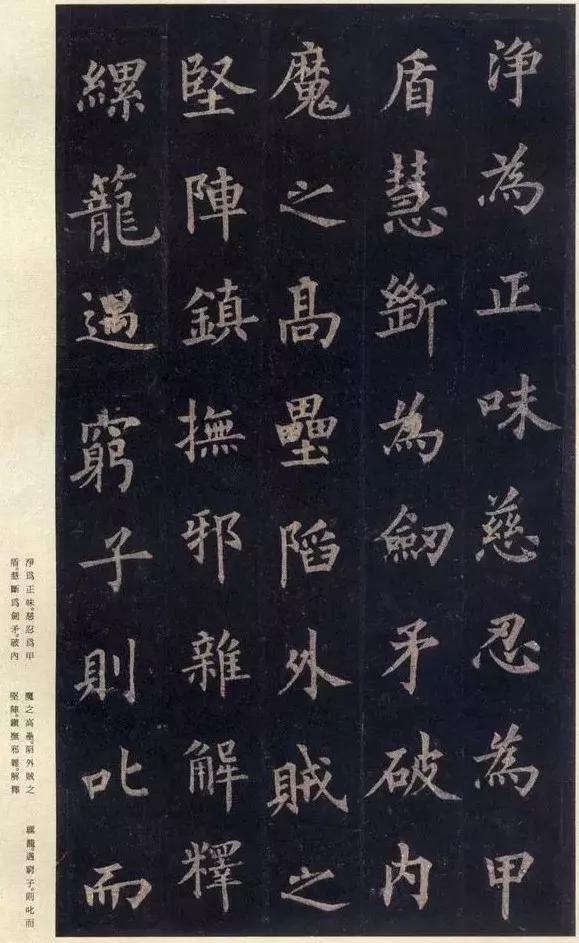 淨為正味慈忍為甲
盾慧斷為劒矛破内
魔之高壘陷外賊之
堅陣鎮撫邪雜解釋
縲籠遇窮子則叱而
淨爲正味。慈忍爲甲
盾。慧斷爲劍矛。破內
魔之高壘。陷外賊之
堅陣。鎮撫邪雜。解釋
縲籠。遇窮子。則叱而